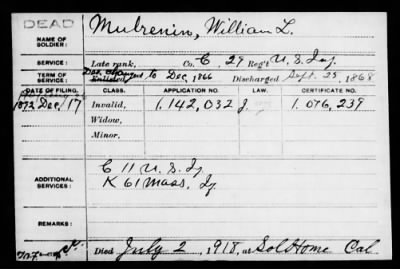 DEAD
NAME OF SOLDIER: Mulrenin, William L.
SERVICE: Late rank, Co. C, 29 Reg't U. S. Inf.
TERM OF SERVICE: Enlisted Dec. 1866 Discharged Sept. 25, 1868
DATE OF FILING. CLASS. APPLICATION NO. LAW. CERTIFICATE NO.
1892 Dec. 17 Invalid, 1,142,032 J. 1,076,239
Widow,
Minor,
ADDITIONAL SERVICES: C 11 U. S. Inf
K 61 Mass. Inf.
REMARKS:
Died July 2, 1918, at Sol Home Cal